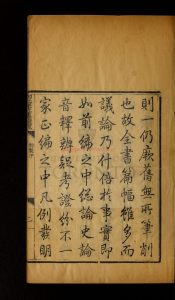 則一仍厥舊無所筆削
也故全書篇幅雖多而
議論乃什倍於事實即
如前編之中總論史論
音釋辨疑考證份不一
家正編之中凡例發明